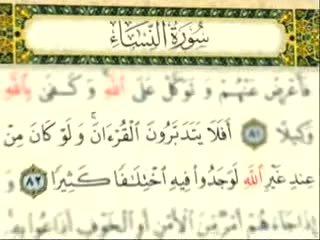 سُورَةُ النِّسَاءِ
فَأَعْرِضْ عَنْهُمْ وَ تَوَكَّلْ عَلَى اللَّهِ وَ كَفَى بِاللَّهِ
وَكِيلًا ٨١ أَفَلَا يَتَدَبَّرُونَ الْقُرْءَانَ ۚ وَ لَوْ كَانَ مِنْ
عِندِ غَيْرِ اللَّهِ لَوَجَدُوا فِيهِ اخْتِلَٰفًا كَثِيرًا ٨٢ وَ
إِذَا جَاءَهُمْ أَمْرٌ مِنَ الْأَمْنِ أَوِ الْخَوْفِ أَذَاعُوا بِهِ